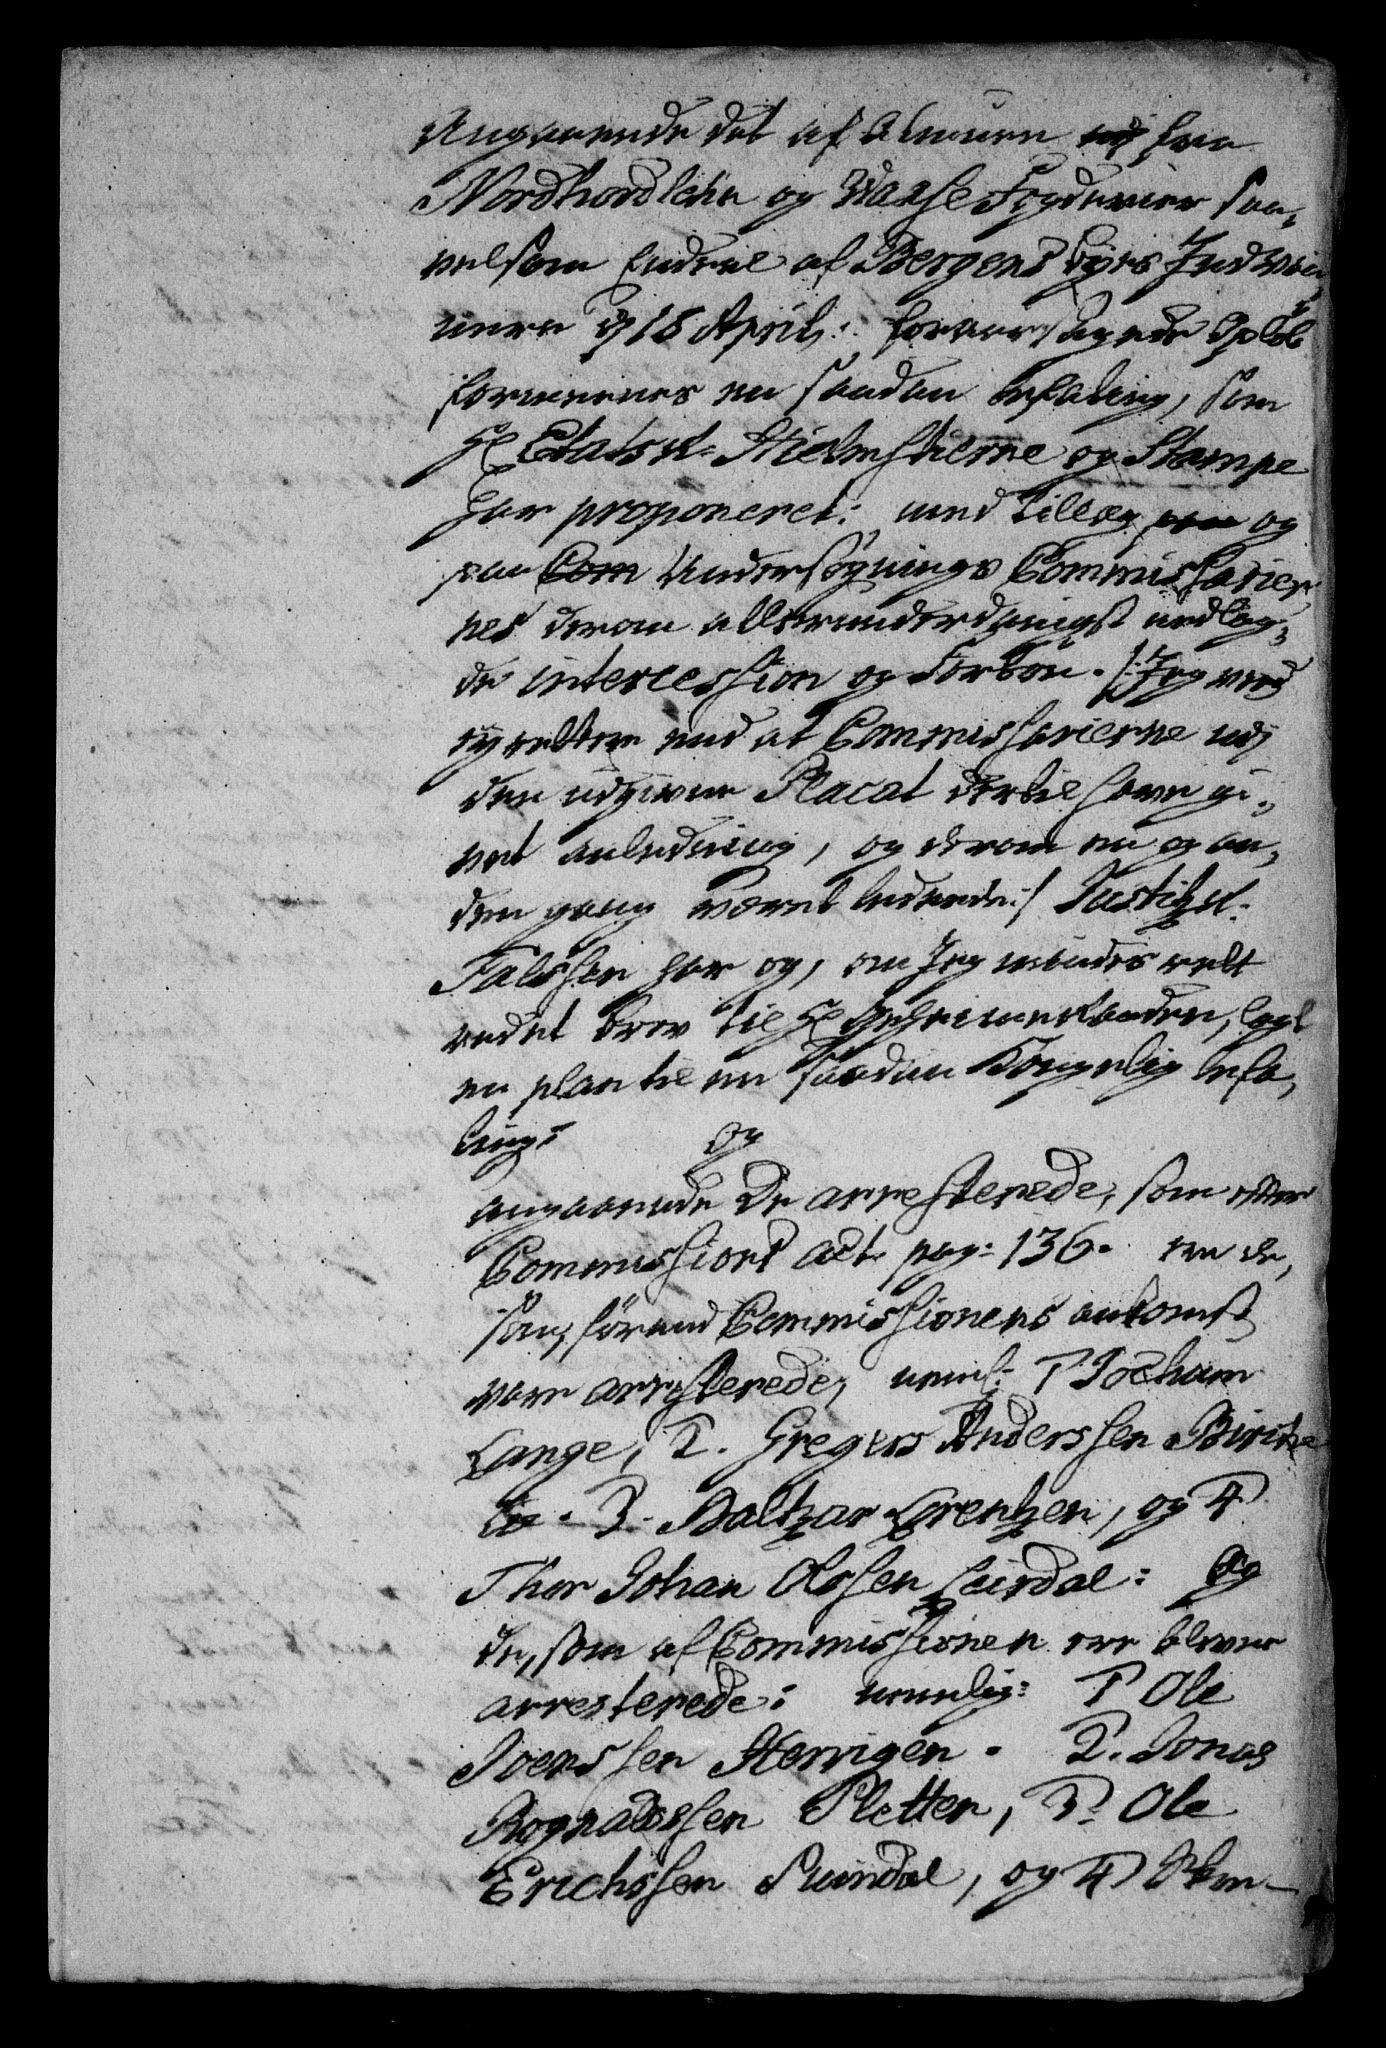 Angaaende det af Almuen fra
Nordhordlehn og Waase Fogderier saa-
velsom endeel af Bergens Byes Indvaa-
nere d 18 April: foraarsagede Opløb
formeenes en saadan befaling, som
H Etatsr. Hielmstierne og Stampe
har proponeret: med tillæg og
paa Com Undersøgnings Commissarier-
nes derom allerunderdanigst nedlag-
de intercession og Forbøn. /: Jeg veed
ey rettere end at Commissarierne udj
den udgivne Placat dertil have gi-
vet anledning, og derom en og an-
den gang været :/ Justitzr.
Falssen har og, om Jeg mindes ret
udet brev til H Geheimeraaden, lagt
en plan til en saadan Kongelig befa-
ling: og
angaaende De arresterede, som efter
Commissions act pag: 136. ere de,
som, førend Commissionens ankomst
vare arresterede, nemlig: 1 Jochum
Lange, 2. Gregers Anderssen Birche
3. Baltzar Lorentzen, og 4
Thor Johan Olssen Leirdal: Og
de, som af Commissionen ere blevne
arresterede: nemlig: 1 Ole
Joenssen Herrigen. 2. Jonas
Rognalssen Pletten, 3. Ole
Erichssen Suindal, og 4